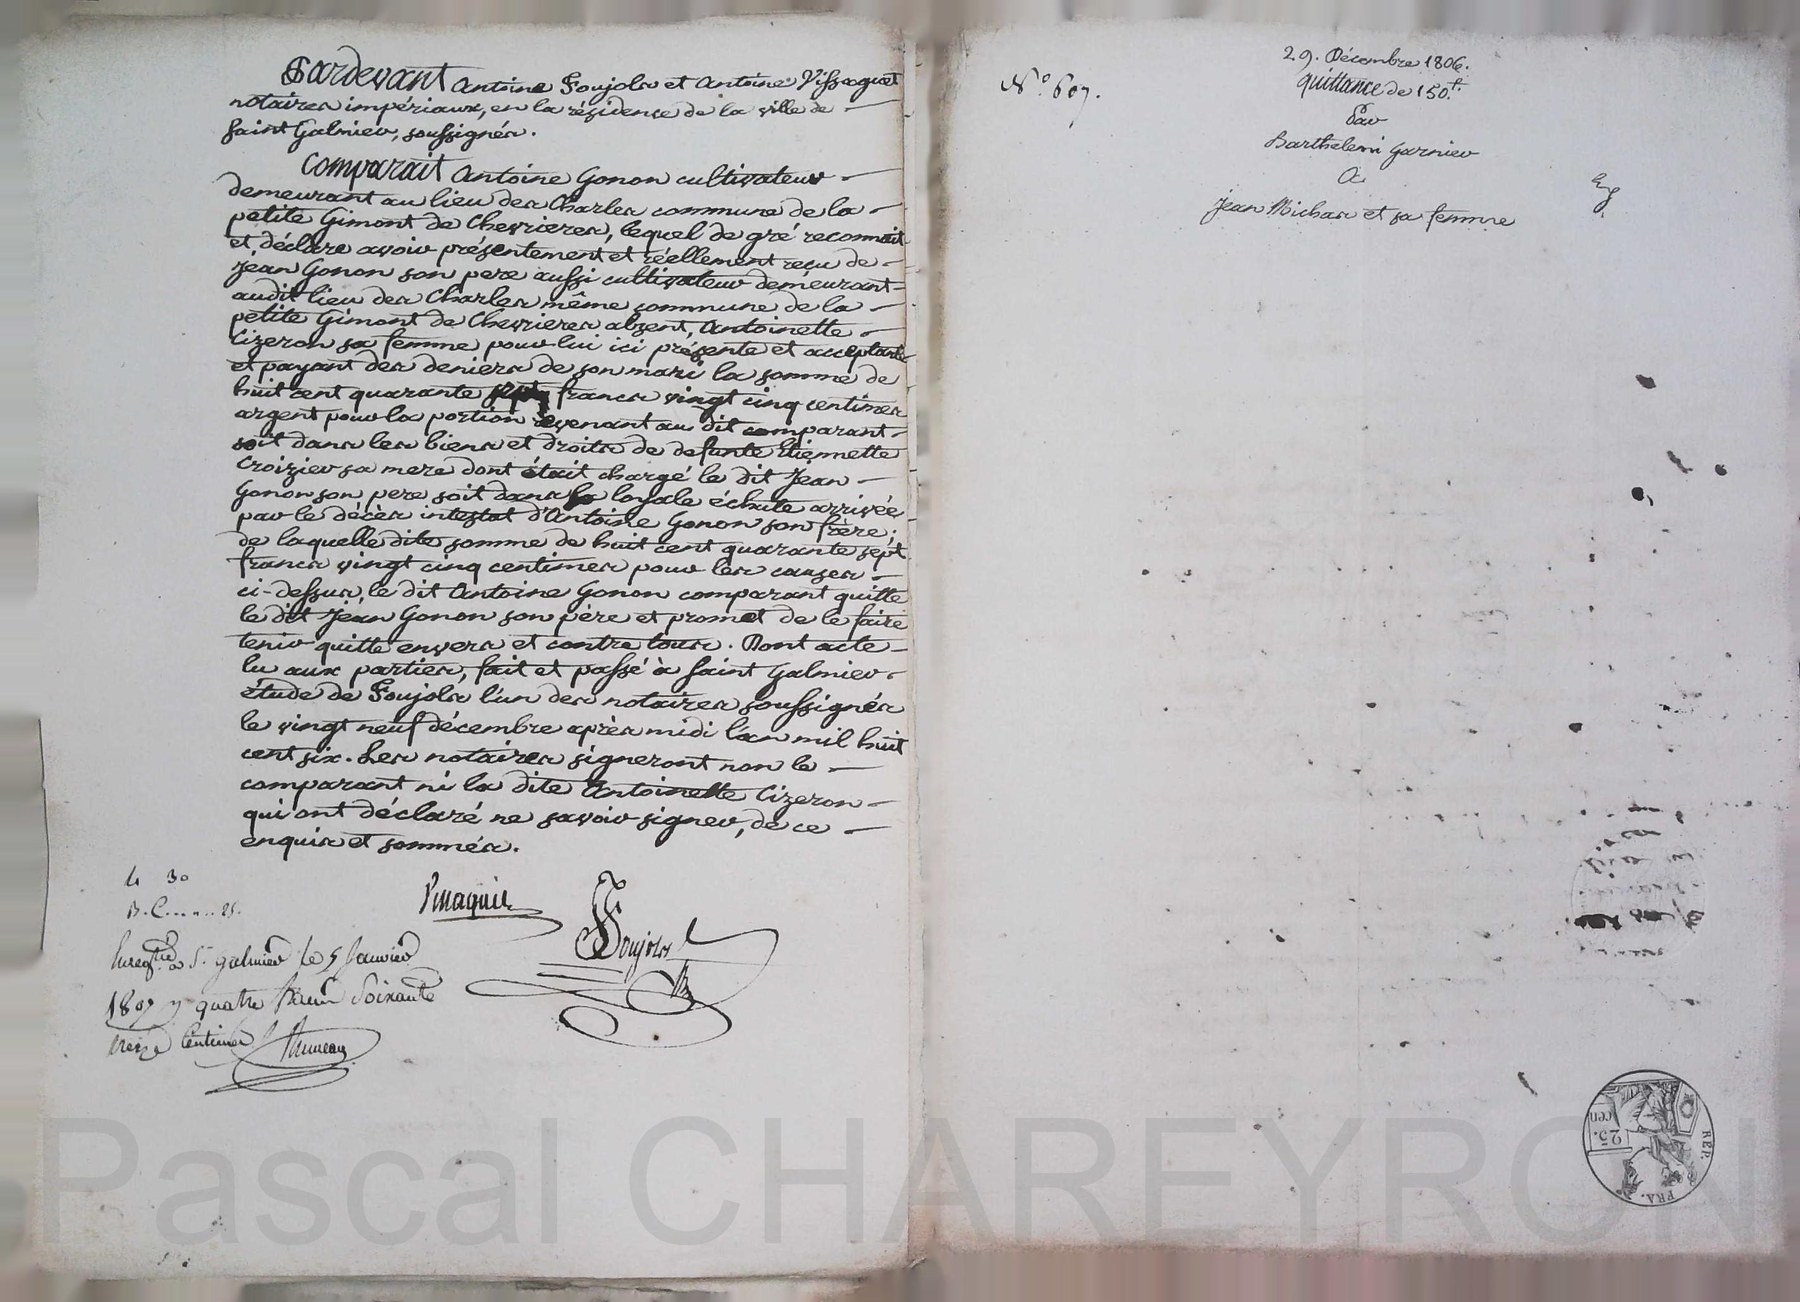 Pardevant Antoine Foujols et Antoine Vissaguet
notaires impériaux, en la résidence de la ville de
Saint Galmier, soussignés.
Comparait Antoine Gonon cultivateur
demeurant au lieu des Charles commune de la
petite Gimont de Chevrieres, lequel de gré reconnait
et déclare avoir présentement et réellement reçu de
Jean Gonon son pere aussi cultivateur demeurant
audit lieu des Charles même commune de la
petite Gimont de Chevrieres absent, Antoinette
Cizeron sa femme pour lui ici présente et acceptante
et payant des deniers de son mari la somme de
huit cent quarante sept francs vingt cinq centimes
argent pour la portion revenant au dit comparant
soit dans les biens et droits de defunte Etiennette
Croizier sa mere dont était chargé le dit Jean
Gonon son pere soit dans la loyale échute arrivée
par le décès intestat d'Antoine Gonon son frère;
de laquelle dite somme de huit cent quarante sept
francs vingt cinq centimes pour les causes
ci-dessus, le dit Antoine Gonon comparant quitte
le dit Jean Gonon son père et promet de le faire
tenir quitte envers et contre tous. Dont acte
lu aux parties, fait et passé à Saint Galmier
étude de Foujols l'un des notaires soussignés
le vingt neuf décembre après midi l'an mil huit
cent six. Les notaires signeront non le
comparant ni la dite Antoinette Cizeron
qui ont déclaré ne savoir signer, de ce
enquis et sommés.
30
Vissaguet
Foujols
Enregtré à St. galmier le 5 Janvier
1807 quatre francs Soixante
treize Centimes
29. Décembre 1806.
N.° 607.
quittance de 150.
Par
Barthelemi Garnier
A
Jean Michas et sa femme
25.
cen
REP.
FRA.
Pascal CHAREYRON